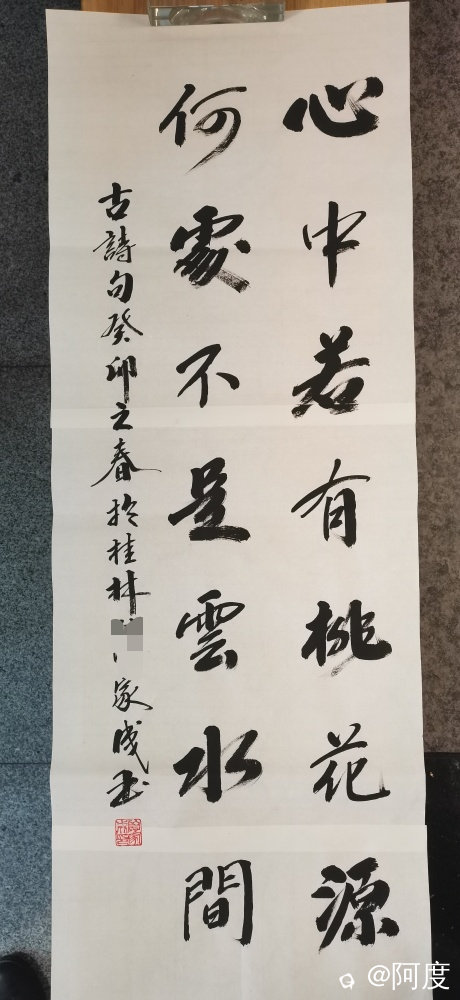 心中若有桃花源
何處不是雲水間
古詩句癸卯之春於桂林
家成书
@阿度